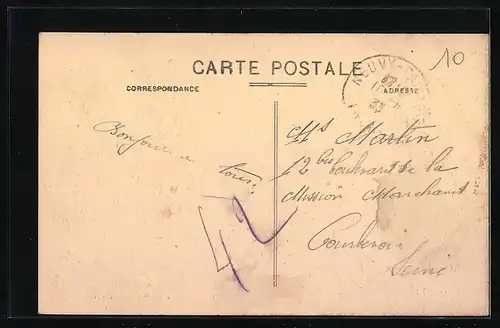 10
CARTE POSTALE
CORRESPONDANCE
ADRESSE
NEUVY
Bonjour a
tous.
Martin
12 bis boulevard de la
Mission Marchand
Courbevoie
Seine
42